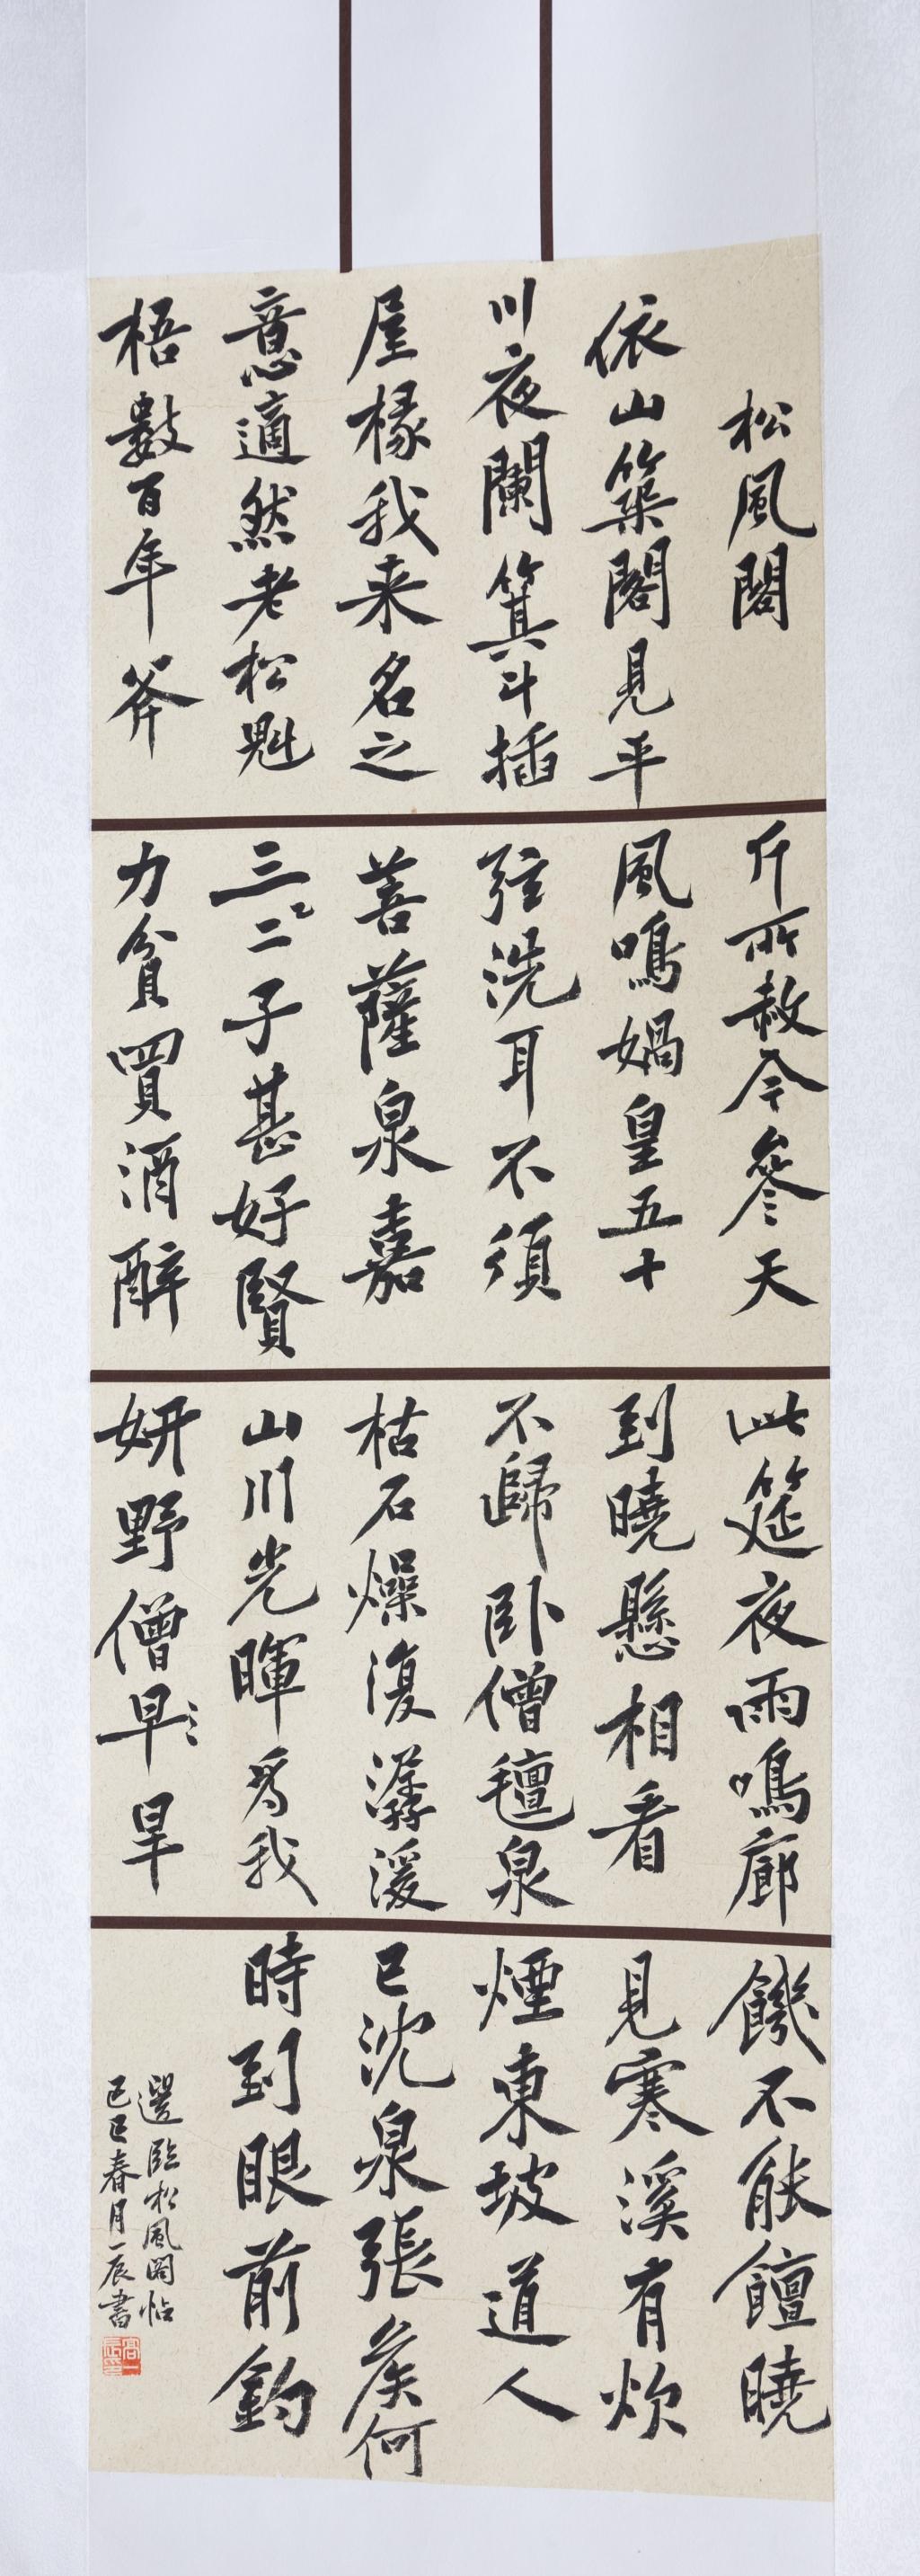 松風閣
依山築閣見平
川夜闌箕斗插
屋椽我来名之
意適然老松魁
梧數百年斧
斤所赦今參天
風鳴媧皇五十
弦洗耳不須
菩薩泉嘉
三二子甚好賢
力貧買酒醉
此筵夜雨鳴廊
到曉懸相看
不歸臥僧氊泉
枯石燥復潺湲
山川光暉為我
妍野僧早旱
饑不能饘曉
見寒溪有炊
煙東坡道人
已沈泉張侯何
時到眼前釣
選臨松風閣帖
己巳春月一辰書